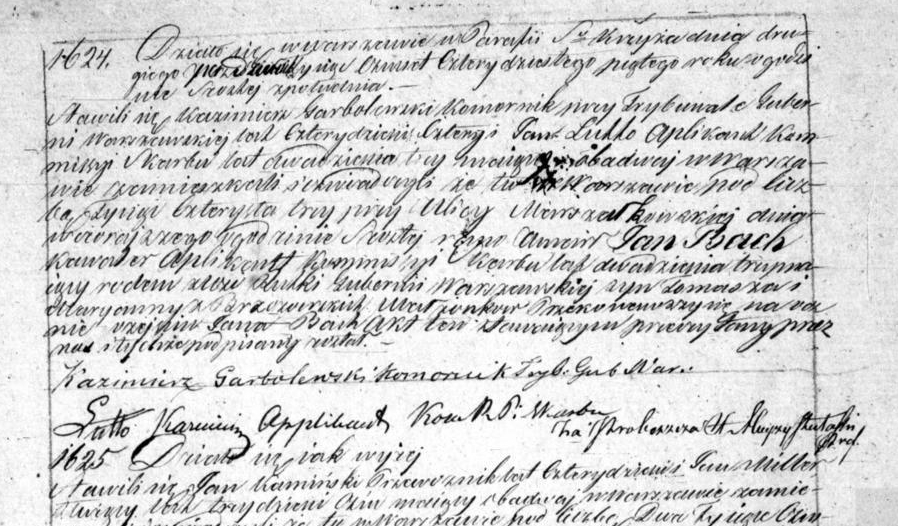 1624. Działo się w Warszawie w Parafii Sgo Krzyża dnia dru-
giego tysiąc Ośmset Czterydziestego piątego roku o godzi
nie Szóstej z południa. —
Stawili się Kazimierz Garbolewski Komornik przy Trybunale Guber-
ni Warszawskiej lat Czterydzieści Cztery i Jan Lutto Aplikant Kom-
missyi Skarbu lat dwadzieścia trzy mający obadwaj w Warsza-
wie zamieszkali i oświadczyli że tu w Warszawie pod licz-
bą Tysiąc Czterysta trzy przy Ulicy Marszałkowskiej dnia
wczorajszego o godzinie Szóstej rano umarł Jan Bach
Kawaler Aplikant Kommissyi Skarbu lat dwadzieścia trzy ma-
jący rodem z Gubernii Warszawskiej syn Tomasza i
Maryanny z Brzozowskich Małżonków Przekonawszy się na oc
nie o zejściu Jana Bach Akt ten Stawającym przeczytany przez
nas i tychże podpisany został. —
Kazimierz Garbolewski Komornik Tryb: Gub War:
Lutto Applikant Kom R. P. i Skarbu
za Proboszcza
1625 Działo się jak wyżej
Stawili się Jan Kamiński Przewoźnik lat Czterydzieści i Jan Miller
lat trzydzieści Ośm mający obadwaj w Warszawie zamie-
że tu w Warszawie pod liczbą Dwa tysiące Ośm-